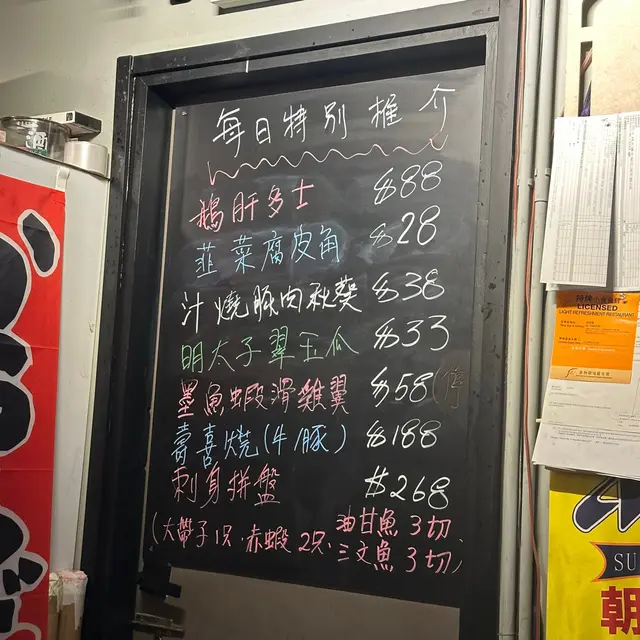 每日特別推介
鵝肝多士 $88
韮菜腐皮角 $28
汁燒豚肉秋葵 $38
明太子翠玉瓜 $33
墨魚蝦滑雞翼 $58 (停
壽喜燒(牛/豚) $188
刺身拼盤 $268
(大帶子1只.赤蝦2只.油甘魚3切
三文魚3切)
LICENSED
LIGHT REFRESHMENT RESTAURANT
SU
朝